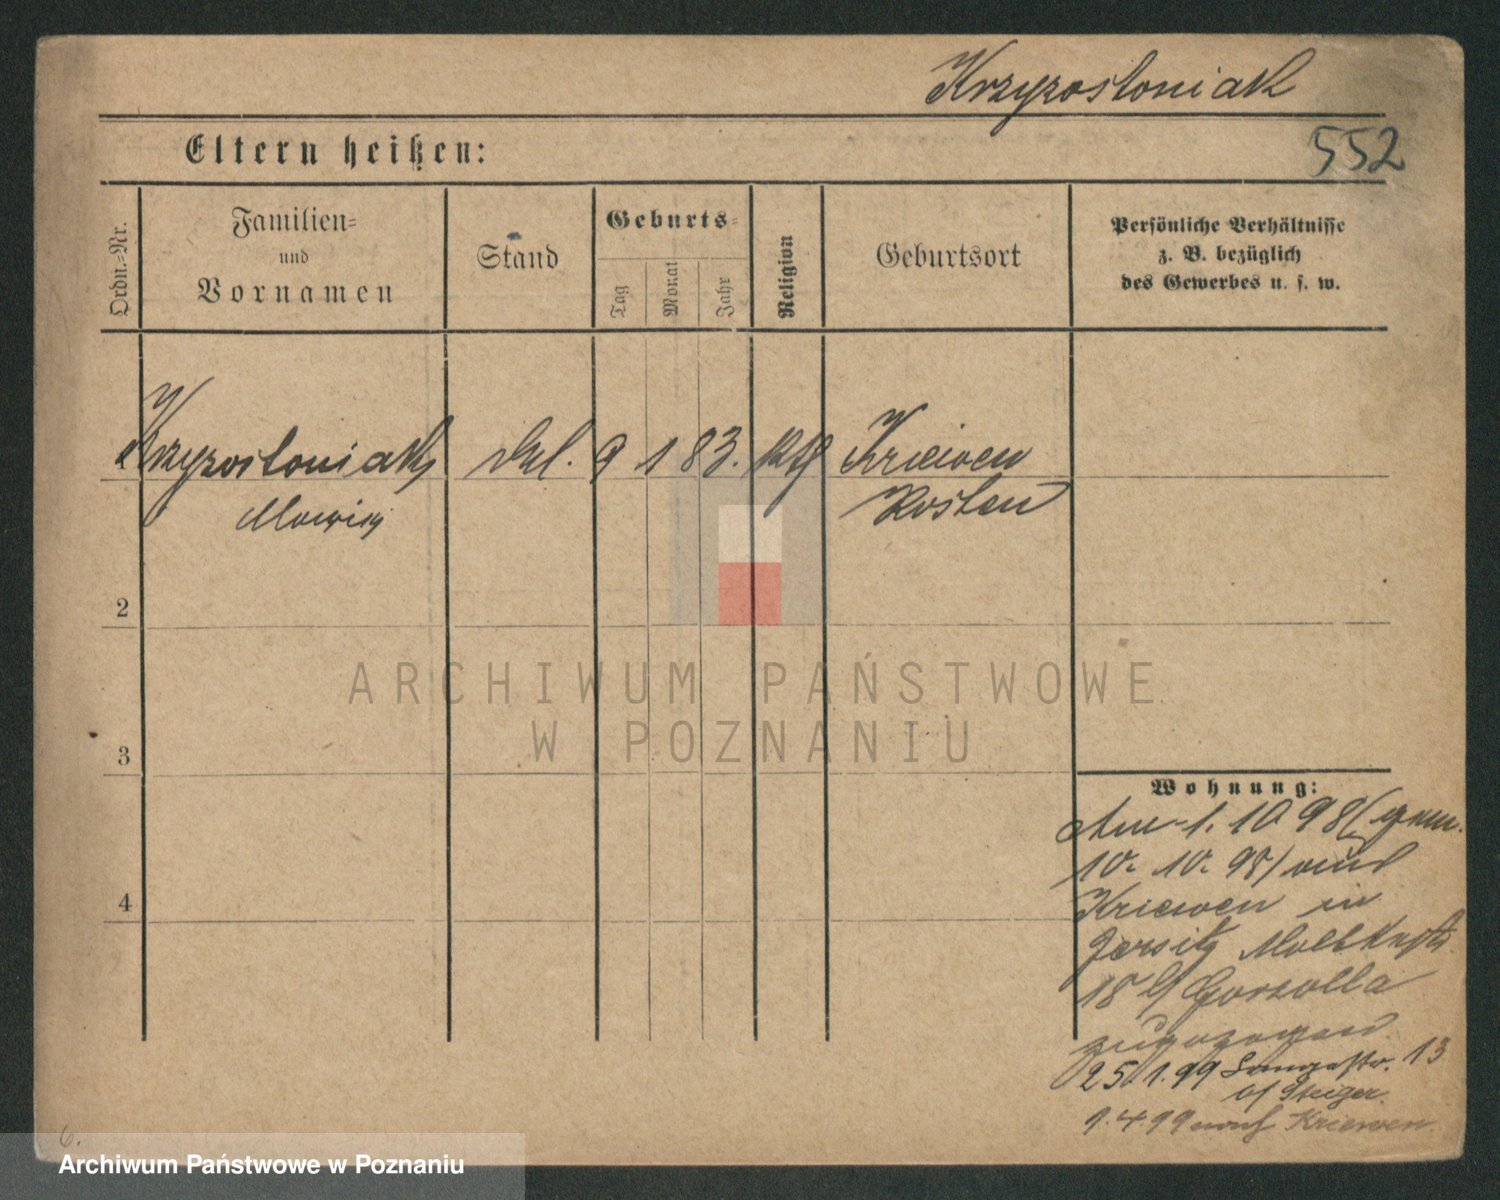 Krzyzostoniak
552
Eltern heißen:
Ordn.-Nr.
Familien-
und
Vornamen
Stand
Geburts-
Tag
Monat
Jahr
Religion
Geburtsort
Persönliche Verhältnisse
z. B. bezüglich
des Gewerbes u. s. w.
Krzyzostoniak, 9 1 83. kth Kriewen
Kosten
2
3
4
Wohnung:
Am 1. 10 98 (gem.
10. 10. 98) aus
Kriewen in
Jersitz Moltkestr.
18 b/ Gorzolla
zugezogen
25.1.99 Langestr. 13
b/ Steiger.
9.4.99 nach Kriewen.
6.
ARCHIWUM PAŃSTWOWE
W POZNANIU
Archiwum Państwowe w Poznaniu